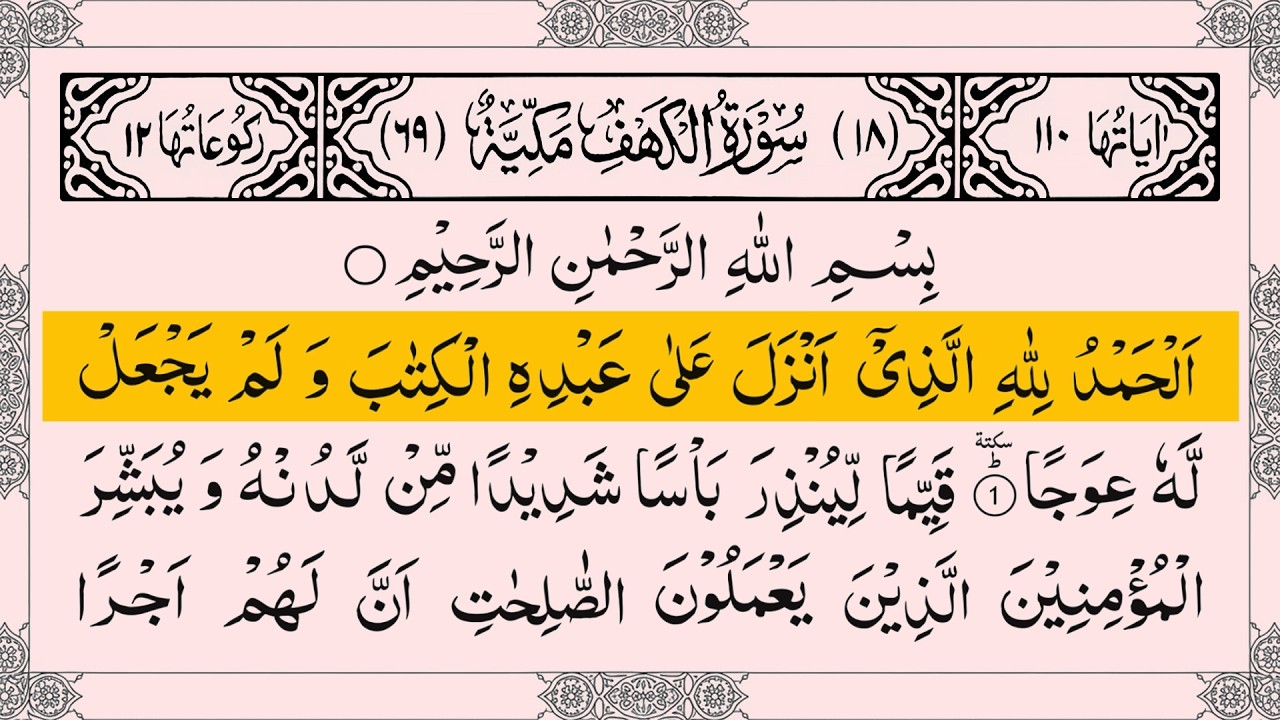 اٰيَاتُهَا ١١٠ (١٨) سُوْرَةُ الْكَهْفِ مَكِّيَّةٌ (٦٩) رُكُوْعَاتُهَا ١٢
بِسْمِ اللّٰهِ الرَّحْمٰنِ الرَّحِيْمِ
اَلْحَمْدُ لِلّٰهِ الَّذِیْۤ اَنْزَلَ عَلٰی عَبْدِهِ الْكِتٰبَ وَ لَمْ یَجْعَلْ
لَّهٗ عِوَجًا ؕ سكتة 1 قَیِّمًا لِّیُنْذِرَ بَاْسًا شَدِیْدًا مِّنْ لَّدُنْهُ وَ یُبَشِّرَ
الْمُؤْمِنِیْنَ الَّذِیْنَ یَعْمَلُوْنَ الصّٰلِحٰتِ اَنَّ لَهُمْ اَجْرًا